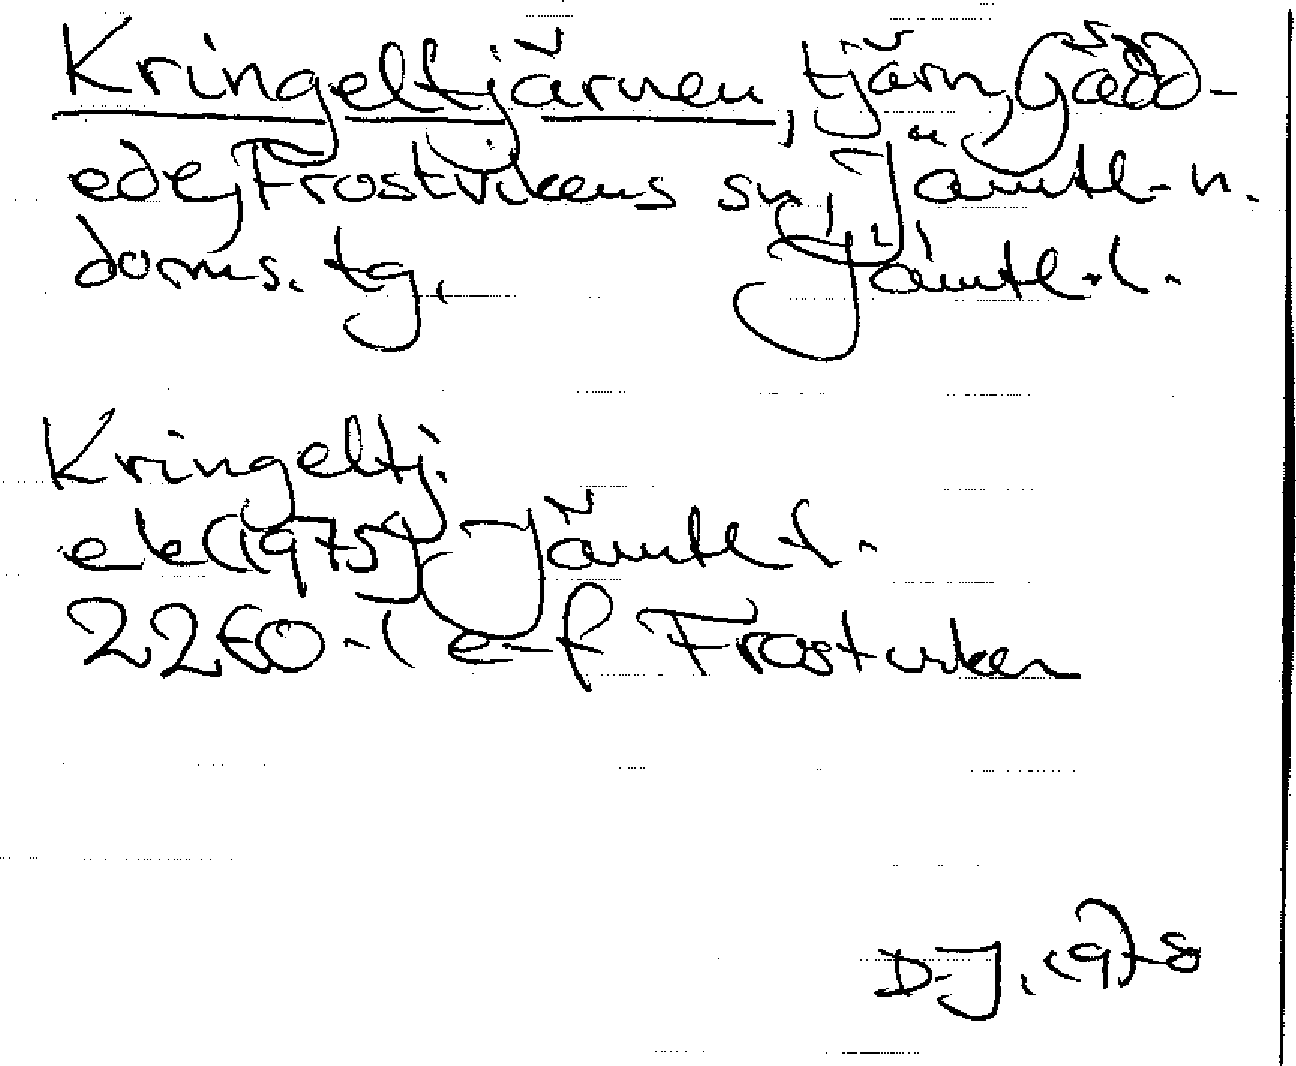 Kringeltjärnen, tjärn, Gädd-
ede, Frostvikens sn, Jämtl. n.
doms. tg. Jämtl. l.
Kringeltj.
ek (1975) Jämtl. l.
22E0-1 e-f Frostviken
D.J. 1978